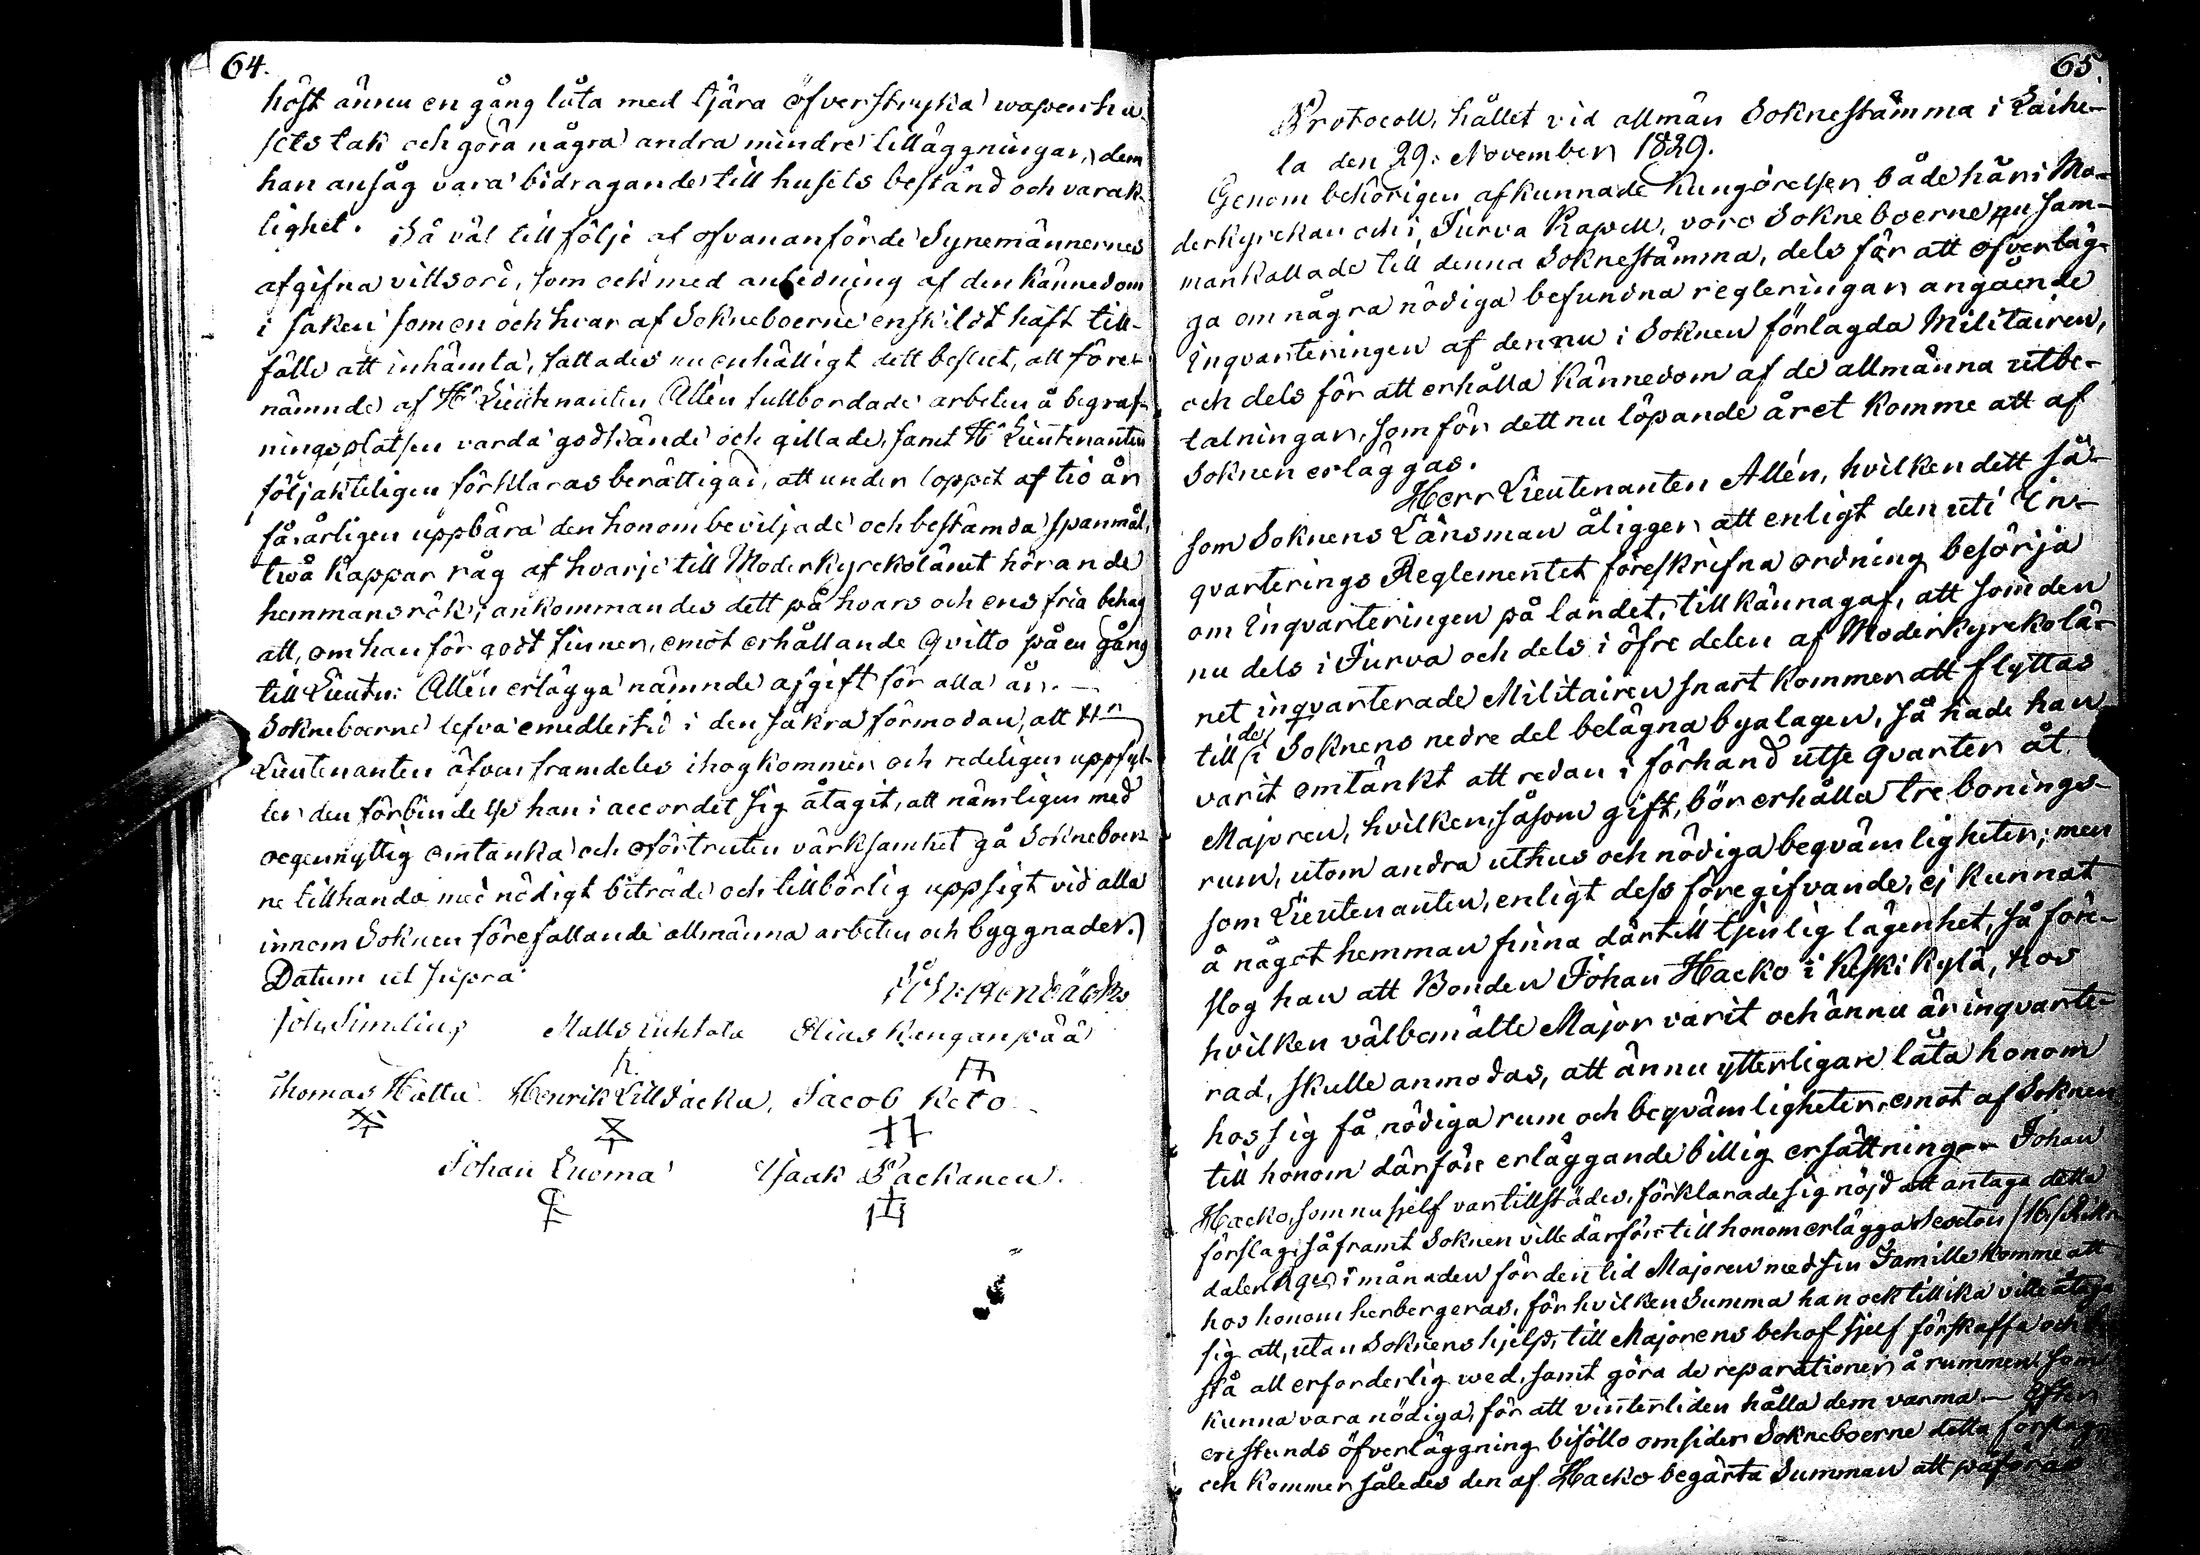 64.
höst ännu en gång låta med tjära öfverstryka wapenhu-
sets tak och göra några andra mindre tilläggningar, dem
han ansåg vara bidragande till husets bestånd och varak-
lighet. Så väl till följe af ofvananförde Synemännernes
afgifna vittsord, som ock med anledning af den kännedom
i saken som en och hvar af Sokneboerne enskildt haft till-
fälle att inhämta, fattades nu enhälligt dett beslut, att före-
nämnde af Hr Lieutenanten Allén fullbordade arbeten å begraf-
ningsplatsen varda godkände och gillade, samt Hr Lieutenanten
följakteligen förklaras berättigad, att under loppet af tio år
få årligen uppbära den honom beviljade och bestämda spanmål,
twå kappar råg af hvarje till Moderkyrkolänet hörande
hemmansrök; ankommandes dett på hvars och ens fria behag
att, om han för godt finner, emot erhållande qvitto på en gång
till Lieutn: Allén erlägga nämnde afgift för alla år. —
Sokneboerne lefva emedlertid i den säkra förmodan, att Hr
Lieutenanten äfven framdeles ihogkommer och redeligen uppfyl-
ler den förbindelse han i accordet sig åtagit, att nämligen med
oegennyttig omtanka och oförtruten värksamhet gå Sokneboer-
ne tillhanda med nödigt biträde och tillbörlig uppsigt vid alla
innom Soknen förefallande allmänna arbeten och byggnader.
Datum ut supra
Joh. Simelius Matts Luhtala Elias Renganpää
Thomas Hattu Henrik Lilljacku, Jacob Keto
Johan Luoma Isaak Packanen.
65.
Protocoll, hållet vid allmän Soknestämma i Laihe-
la den 29: November 1829.
Genom behörigen afkunnade kungörelser både här i Mo-
derkyrckan och i Jurva Kapell, voro Sokneboerne nu sam-
mankallade till denna Soknestämma, dels för att öfverläg-
ga om några nödiga befundna regleringar angående
inqvarteringen af den nu i Soknen förlagda Militairen,
och dels för att erhålla kännedom af de allmänna utbe-
talningar, som för dett nu löpande året komme att af
Soknen erläggas.
Herr Lieutenanten Allén, hvilken dett så-
som Soknens Länsman åligger att enligt den uti In-
qvarterings Reglementet föreskrifna ordning besörja
om inqvarteringen på landet, tillkännagaf, att som den
nu dels i Jurva och dels i öfre delen af Moderkyrckolä-
net inqvarterade Militairen snart kommer att flyttas
till de i Soknens nedre del belägna byalagen, så hade han
varit omtänkt att redan i förhand utse qvarter åt
Majoren, hvilken, såsom gift, bör erhålla tre bonings-
rum, utom andra uthus och nödiga beqvämligheter; men
som Lieutenanten, enligt dess föregifvande, ej kunnat
å något hemman finna därtill tjenlig lägenhet, så före-
slog han att Bonden Johan Hacko i Keskikylä, hos
hvilken välbemälte Major varit och ännu är inqvarte-
rad, skulle anmodas, att ännu ytterligare låta honom
hos sig få nödiga rum och beqvämligheter, emot af Soknen
till honom därföre erläggande billig ersättning. — Johan
Hacko, som nu sjelf var tillstädes, förklarade sig nöjd att antaga detta
förslag, såframt Soknen ville därföre till honom erlägga sexton /16/ Riks-
daler Rgs i månaden för den tid Majoren med sin Famille komme att
hos honom herbergeras, för hvilken Summa han ock tillika ville åtaga
sig att, utan Soknens hjelp, till Majorens behof sjelf förskaffa och be-
stå all erforderlig wed, samt göra de reparationer å rummen, som
kunna vara nödiga, för att vintertiden hålla dem varma. — Efter
en stunds öfverläggning biföllo omsider Sokneboerne detta förslag,
och kommer således den af Hacko begärta Summan att påföras